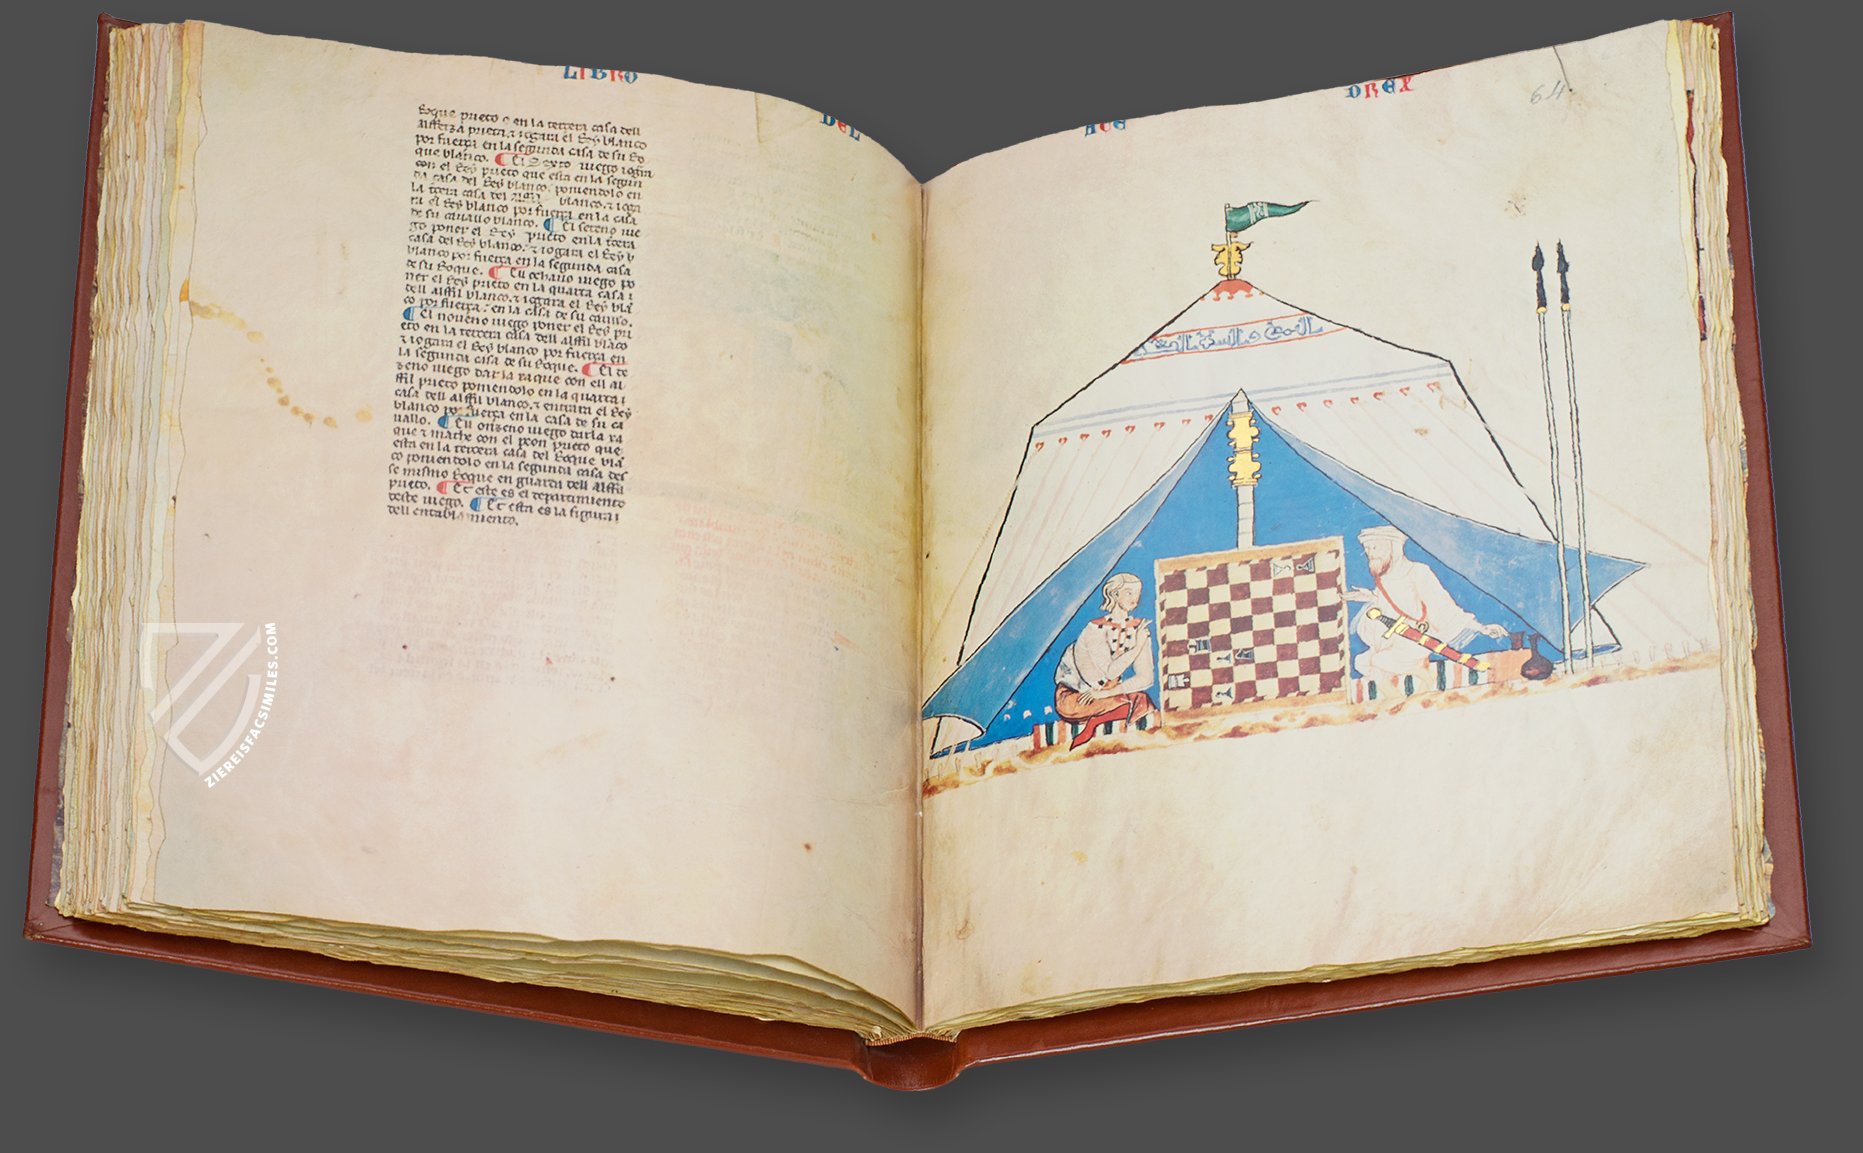 LIBRO
DEL
Roque prieto o en la tercera casa dell
Alfferza prieta. & iogara el Rey blanco
por fuerça en la segunda casa de su Ro
que blanco. ¶ El Sexto iuego iogar
con el Rey prieto que esta en la segun
da casa del Rey blanco. poniendolo en
la tercera casa del blanco. & ioga
ra el Rey blanco por fuerça en la casa
de su cauallo blanco. ¶ El seteno iue
go poner el Rey prieto en la tercera
casa del Rey blanco. & iogara el Rey b
blanco por fuerça en la segunda casa
de su Roque. ¶ El ochauo iuego po
ner el Rey prieto en la quarta casa
dell alffil blanco. & iogara el Rey blan
co por fuerça en la casa de su cauallo.
¶ El noueno iuego poner el Rey pri
eto en la tercera casa dell alffil blanco
& iogara el Rey blanco por fuerça en
la segunda casa de su Roque. ¶ El de
zeno iuego dar la xaque con ell al
ffil prieto poniendolo en la quarta
casa dell alffil blanco. & entrara el Rey
blanco por fuerça en la casa de su ca
uallo. ¶ El onzeno iuego darla xa
que & mathe con el peon prieto que
esta en la tercera casa del Roque blan
co poniendolo en la segunda casa des
se mismo Roque en guarda dell alffil
prieto. ¶ Et este es el departimiento
deste iuego. ¶ Et esta es la figura
dell entablamiento.
AUE
DREX
64
ZIEREISFACSIMILES.COM